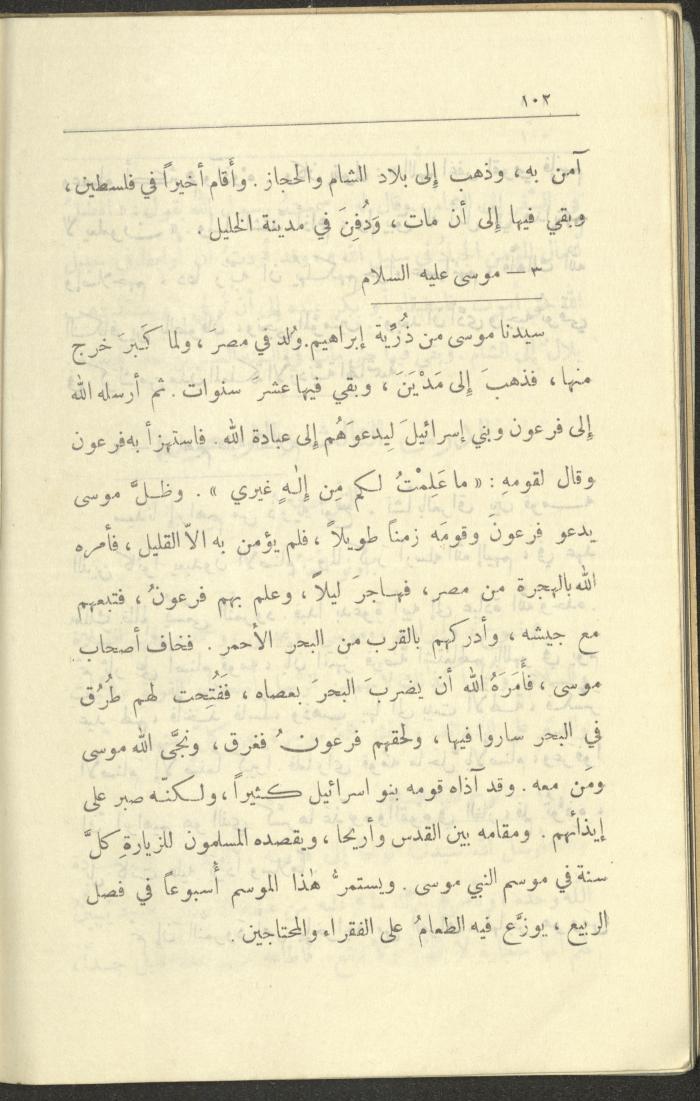 ١٠٢
آمن به ، وذهب إِلى بلاد الشام والحجاز . وأَقام أخيراً في فلسطين ،
وبقي فيها إِلى أن مات ، وَدُفِنَ في مدينة الخليل .
٣ — موسى عليه السلام
سيدنا موسى من ذُرِّية إبراهيم. وُلد في مصرَ ، ولما كَبِرَ خرج
منها ، فذهبَ إِلى مَدْيَنَ ، وبقي فيها عشرَ سنوات . ثم أرسله الله
إِلى فرعون وبني إسرائيلَ لِيدعوَهُم إلى عبادة الله . فاستهزأ به فرعون
وقال لقومهِ : « ما عَلِمْتُ لكم مِن إِلـٰهٍ غيري » . وظـلَّ موسى
يدعو فرعونَ وقومَه زمناً طويلاً ، فلم يؤمن به الاّ القليل ، فأمره
الله بالهجرة من مصر ، فهـاجرَ ليلاً ، وعلم بهم فرعونُ ، فتبعهم
مع جيشه ، وأدركهم بالقرب من البحر الأحمر . فخاف أصحاب
موسى ، فأَمَرَهُ الله أن يضربَ البحرَ بعصاه ، فَفُتِحت لهم طُرُق
في البحر ساروا فيها ، ولحقهم فرعونُ فغرق ، ونجَّى الله موسى
ومَن معه . وقد آذاه قومه بنو اسرائيل كـثيراً ، ولـكنّه صبر على
إيذائهم . ومقامه بين القدس وأريحا ، ويقصده المسلمون للزيارةِ كلَّ
سنة في موسم النبي موسى . ويستمرُّ هٰذا الموسم أُسبوعاً في فصل
الربيع ، يوزَّع فيه الطعامُ على الفقراء والمحتاجين .